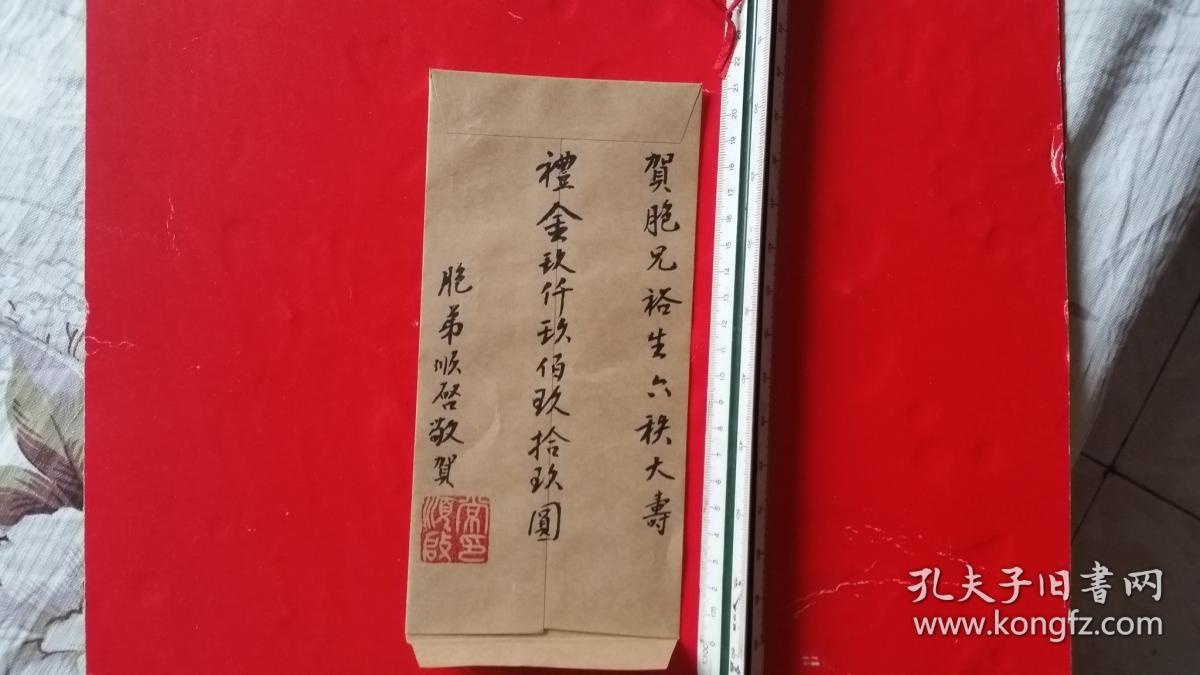 賀胞兄裕生六秩大壽
禮金玖仟玖佰玖拾玖圓
胞弟順啓敬賀
常印
順啟
孔夫子旧書网
www.kongfz.com